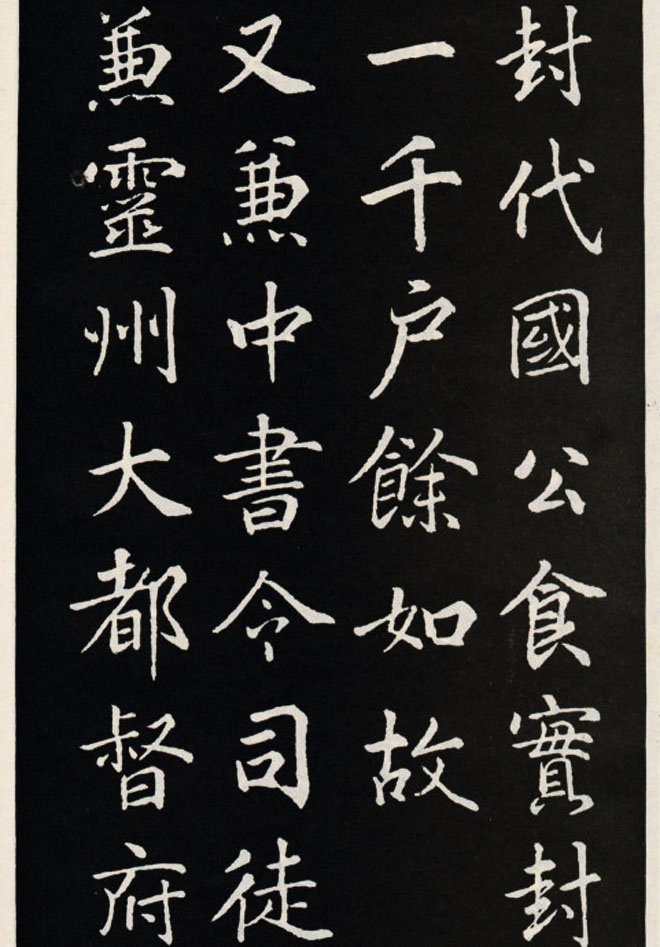 封代國公食實封
一千戶餘如故
又兼中書令司徒
兼靈州大都督府